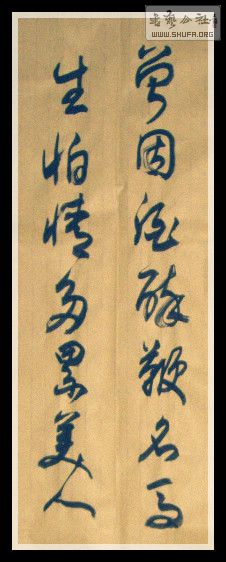 曾因酒醉鞭名马
生怕情多累美人
书艺公社
WWW.SHUFA.ORG